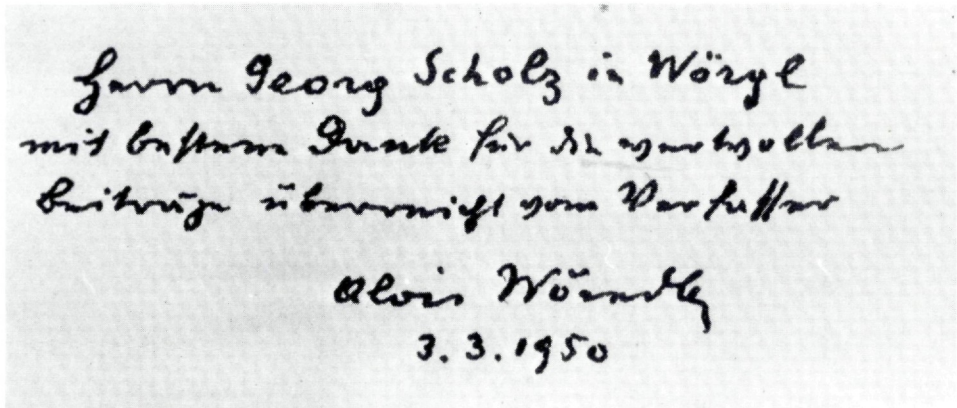 Herrn Georg Scholz in Wörgl
mit bestem Danke für die wertvollen
Beiträge überreicht vom Verfasser
Alois Wörndle
3.3.1950